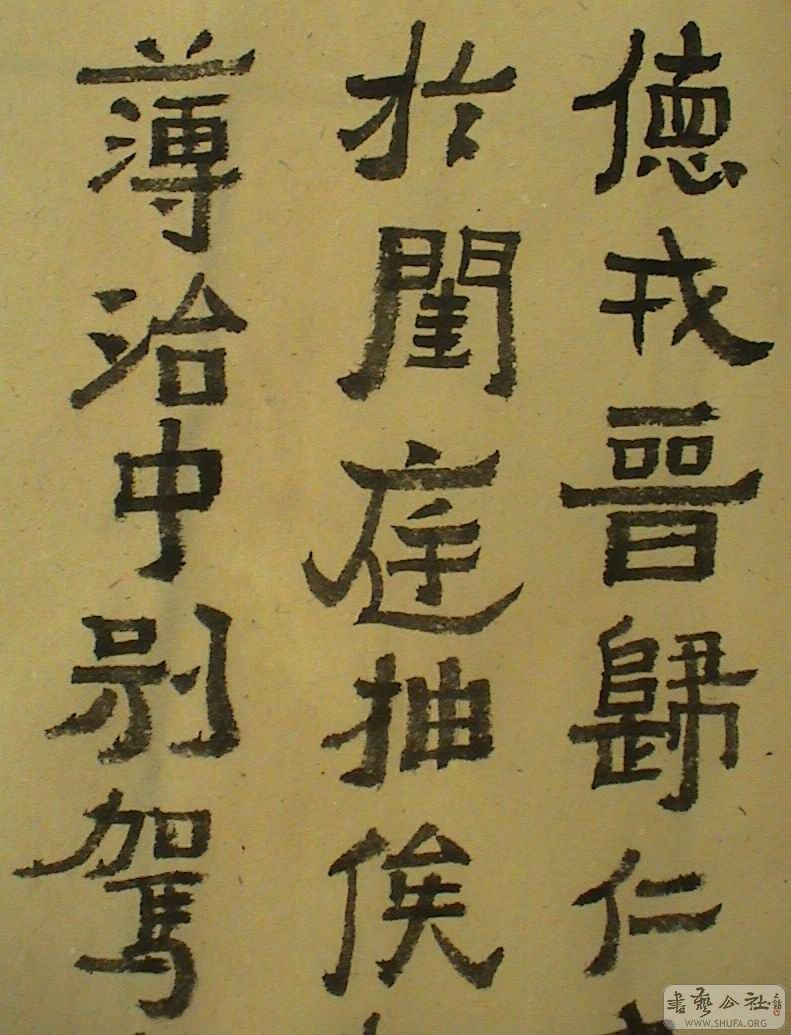 德戎晉歸仁
於閨庭抽俟
薄治中別駕
書藝公社
WWW.SHUFA.ORG